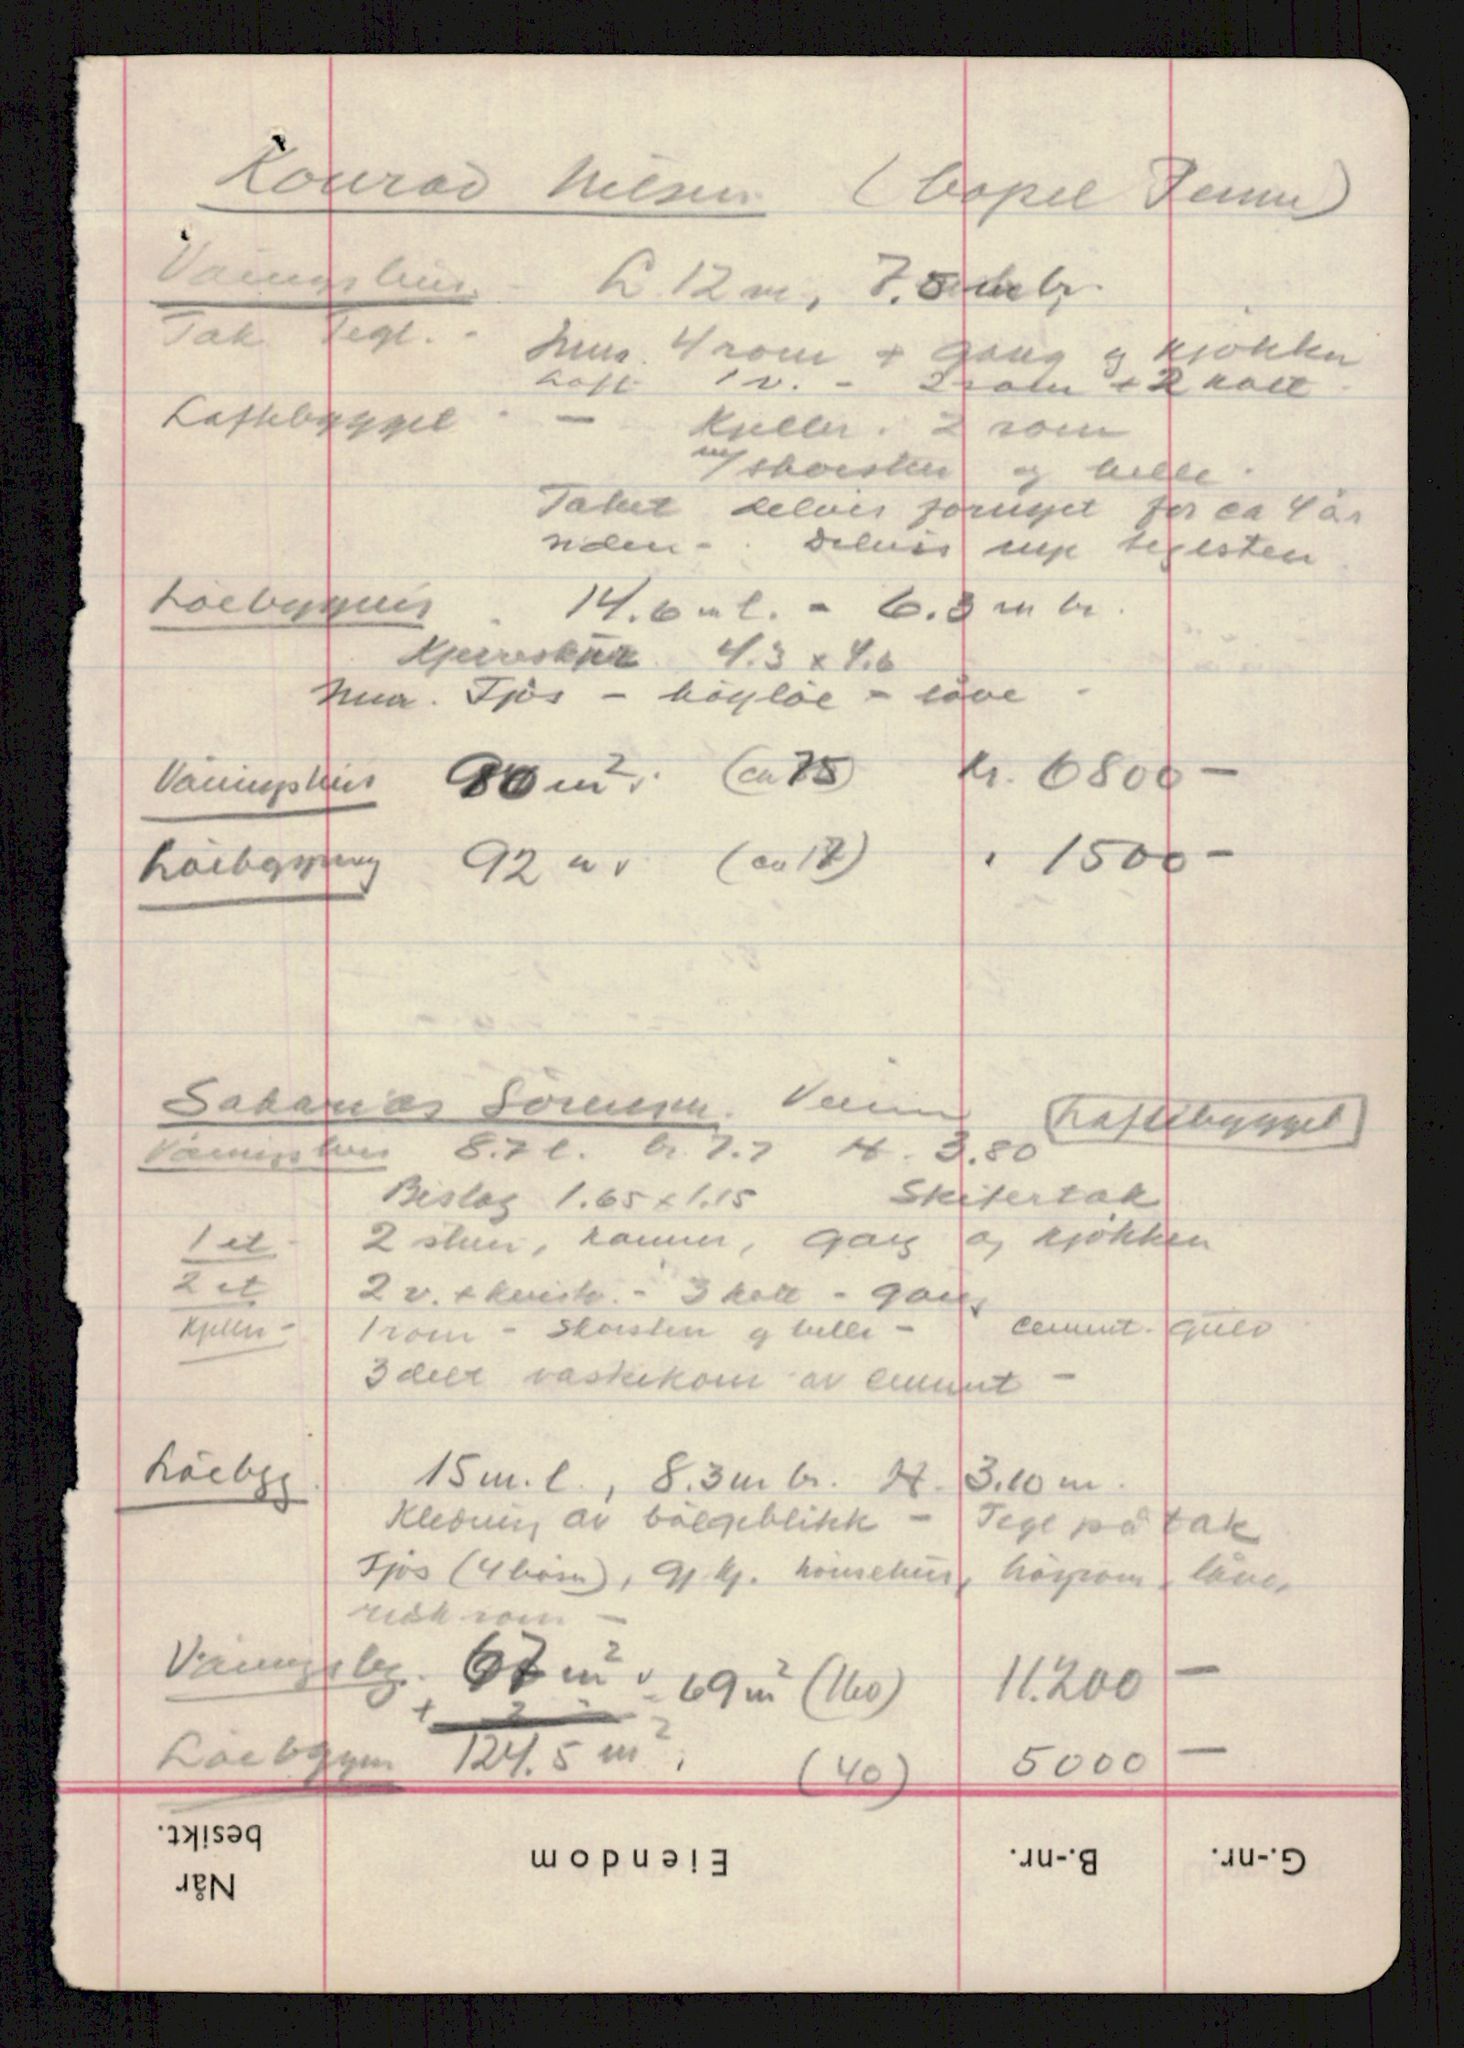 Konrad Nilsen (
Våningshus - L 12 m, 7.5 m br.
Tak Tegl. - Inna. 4 rom + gang og kjökken
Loft 1 v. - 2 rom + 2 kott
Laftebygget - Kjeller. 2 rom
m/ skorsten og helle.
Taket delvis fornyet for ca 4 år
siden - . Delvis nye teglsten
Löebygning 14.6 m l. - 6.3 m br.
4.3 x 4.6
Inna. Fjös - höyløe - låve -
Våningshus 90 m² v. (ca 75) kr. 6800 -
Löebygning 92 " v (ca 17) " 1500 -
Sakarias Sörensen. Laftebygget
Våningshus 8.7 l. br. 7.7 H. 3.80
Bislag 1.65 x 1.15 Skifertak
1 et 2 stuer, kammer, gang og kjökken
2 et 2 v. + kvistv. - 3 kott - gang
Kjeller - 1 rom - Skorsten og helle - Cement. gulv
3 delt vaskekom av cement -
Löebygg. 15 m. l., 8.3 m br. H. 3.10 m.
Kledning av bölgeblikk - Tegl på tak
Fjös (4 båser), gj.kj. hönsehus, höyrom, låve,
rom -
Våningsbg. 67 m² v - 69 m² (160) 11.200 -
+ 2 "
Löebygn 124.5 m². (40) 5000 -
Når besikt.
Eiendom
B.-nr.
G.-nr.